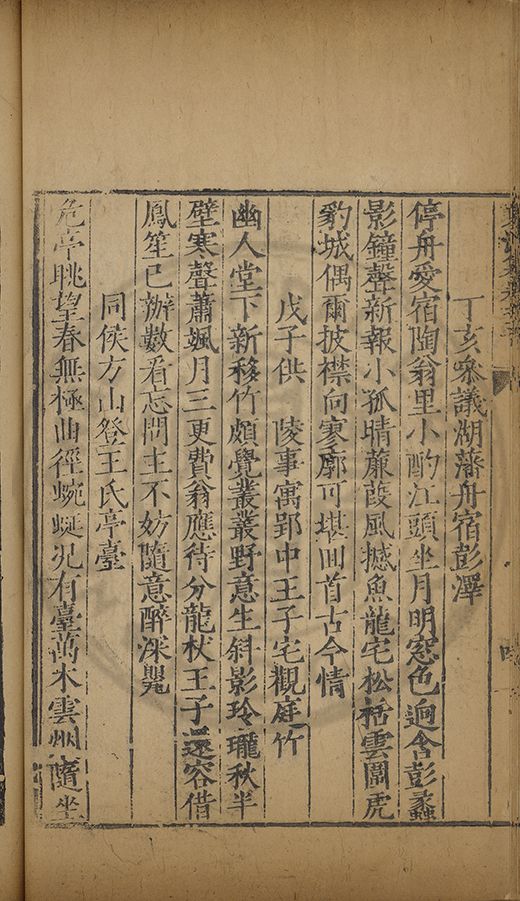 丁亥叅議湖藩舟宿彭澤
停舟愛宿陶翁里小酌江頭坐月明窓色逈含彭蠡
影鐘聲新報小孤晴蒹葭風撼魚龍宅松栝雲關虎
豹城偶爾披襟向寥廓可堪囬首古今情
戊子供 陵事寓郢中王子宅觀庭竹
幽人堂下新移竹頗覺叢叢野意生斜影玲瓏秋半
壁寒聲蕭颯月三更費翁應待分龍杖王子還容借
鳳笙已辦數看忘問主不妨隨意醉深觥
同侯方山登王氏亭臺
危亭眺望春無極曲徑蜿蜒况有臺萬木雲烟隨坐